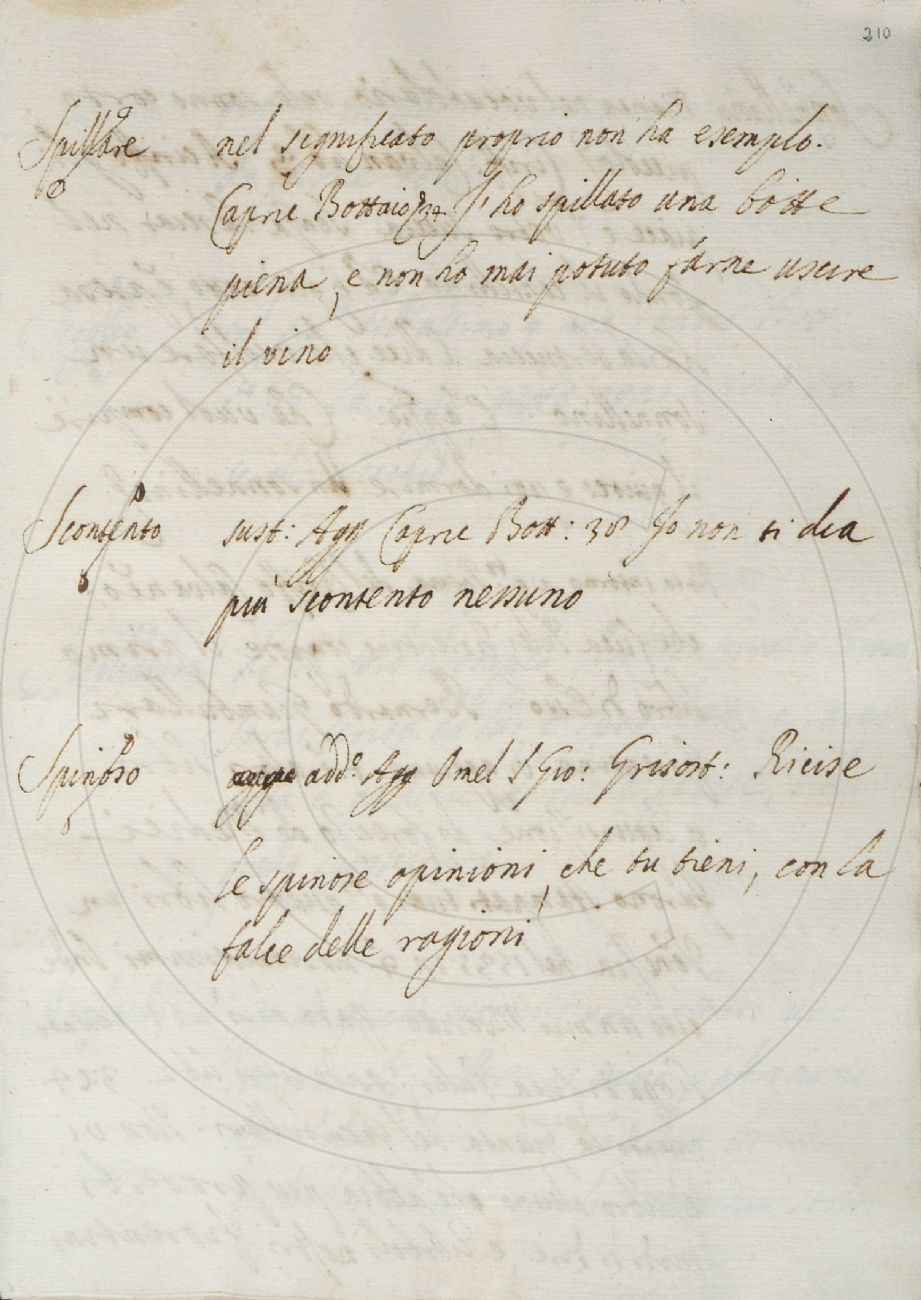 210
Spillare nel significato proprio non ha esemplo.
Capric Bottaio 34. Io ho spillato una botte
piena, e non ho mai potuto farne uscire
il vino
Scontento sust: Agg Capric Bott: 38 Io non ti dea
più scontento nessuno
Spinoso add.º Agg Omel S Gio: Grisost: Ricise
le spinose opinioni, che tu tieni, con la
falce delle ragioni